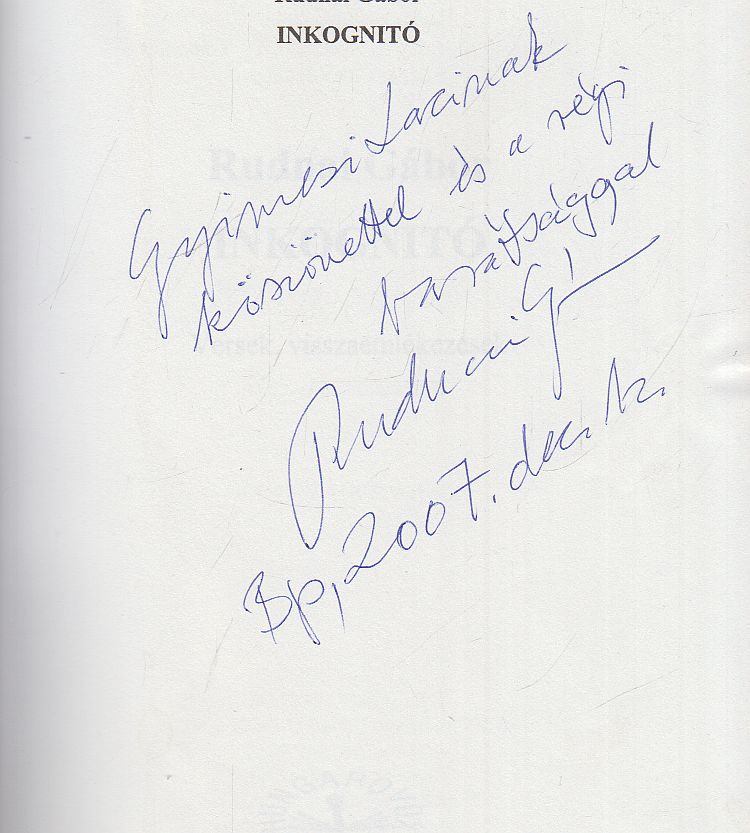 Rudnai Gábor
INKOGNITÓ
Gyimesi Lacinak
köszönettel és a régi
barátsággal
Rudnai G!
Bp, 2007. dec. 12.
Rudnai Gábor
INKOGNITÓ
Versek, visszaemlékezések